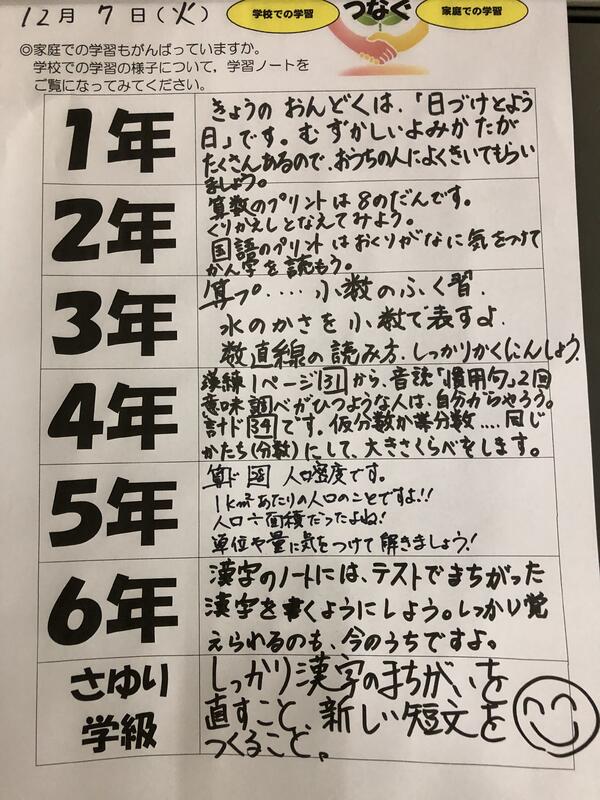 12月 7日(火)
学校での学習
つなぐ
家庭での学習
◎家庭での学習もがんばっていますか。
学校での学習の様子について，学習ノートを
ご覧になってみてください。
1年
きょうの おんどくは、「日づけとよう
日」です。むずかしいよみかたが
たくさんあるので、おうちの人によくきいてもらい
ましょう。
2年
算数のプリントは8のだんです。
くりかえしとなえてみよう。
国語のプリントはおくりがなに気をつけて
かん字を読もう。
3年
算プ‥‥小数のふく習.
水のかさを小数で表すよ.
数直線の読み方.しっかりかくにんしょう.
4年
漢練1ページ31から、音読「慣用句」2回
意味調べがひつような人は、自分からやろう。
計ド34です。仮分数か帯分数‥‥同じ
かたち(分数)にして、大きさくらべをします。
5年
算ド 人口密度です。
1km²あたりの人口のことですよ!!
人口÷面積だったよね!
単位や量に気をつけて解きましょう!
6年
漢字のノートには、テストでまちがった
漢字を書くようにしよう。しっかり覚
えられるのも、今のうちですよ。
さゆり
学級
しっかり漢字のまちがいを
直すこと、新しい短文を
つくること。